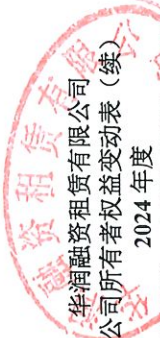 华润融资租赁有限公司
公司所有者权益变动表（续）
2024 年度
融资租赁有限公